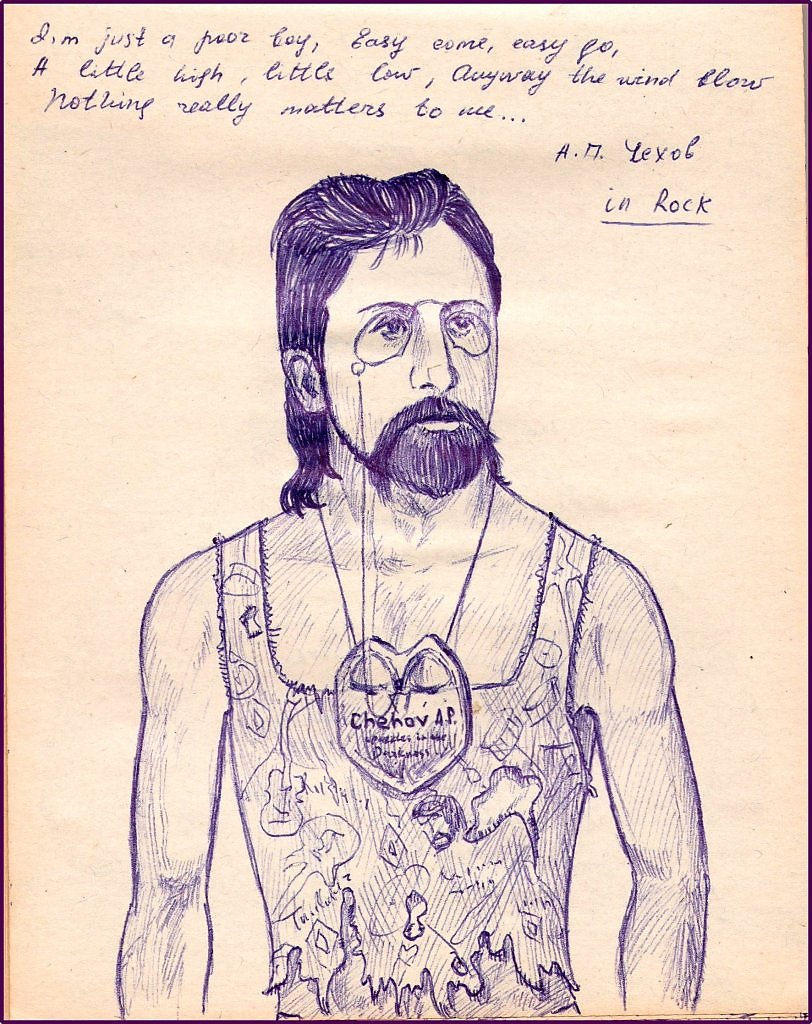 I,m just a poor boy, Easy come, easy go,
A little high, little low, Anyway the wind blow
Nothing really matters to me...
А.П. Чехов
in Rock
Chehov A.P.
in the
Darkness